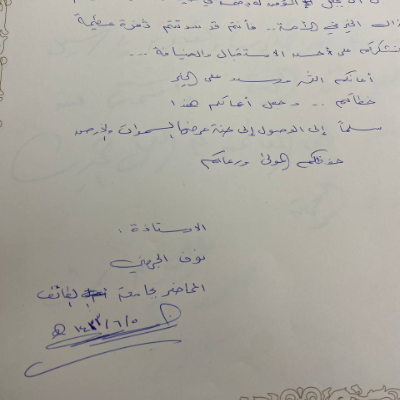 ذاك الخير في الأمة .. فأنتم قد سددتم ثغرة عظيمة
نشكركم على أحسن الاستقبال والضيافة ...
أعانكم الله وسدد على الخير
خطاكم .. وجعل أعمالكم هذا
سلماً إلى الوصول إلى جنة عرضها السموات والأرض
حفظكم المولى ورعاكم
الأستاذة :
نوف الجهني
المحاضر بجامعة الطائف
١٤٣٣/٦/٥ هـ